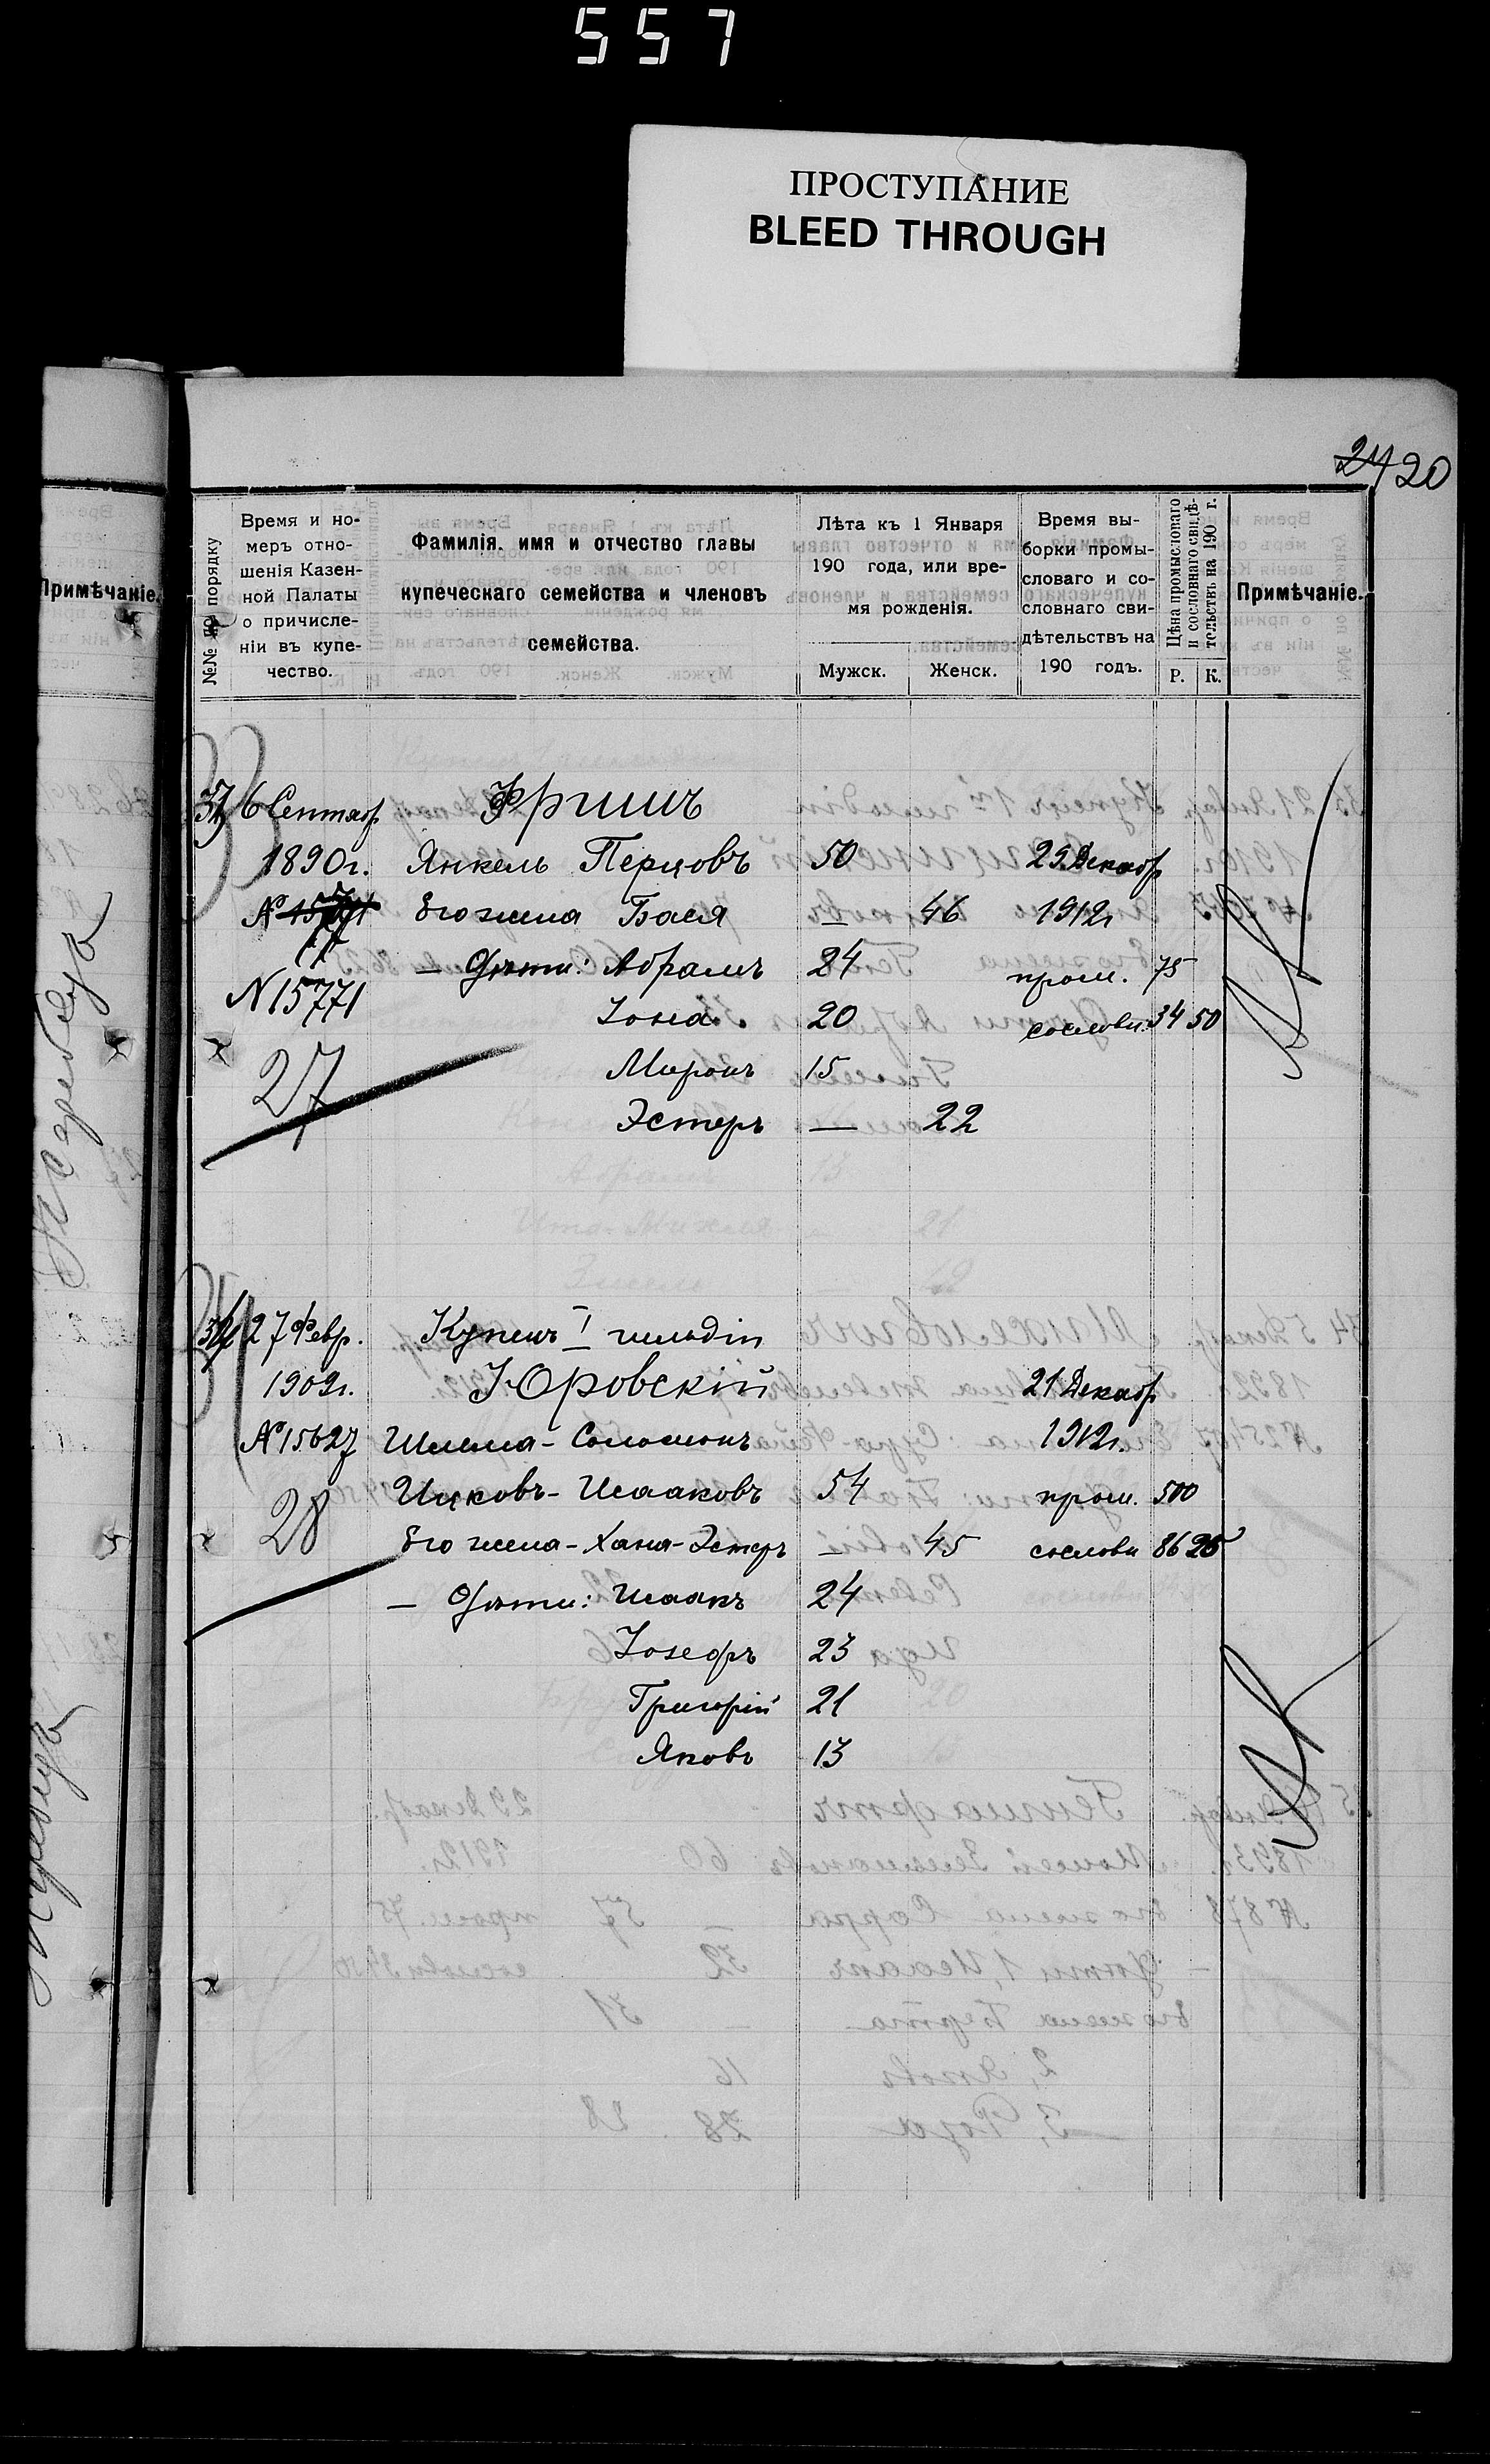 557
ПРОСТУПАНИЕ
BLEED THROUGH
24 20
Примѣчаніе.
№№ по порядку
Время и но-
меръ отно-
шенія Казен-
ной Палаты
о причисле-
ніи въ купе-
чество.
Фамилія, имя и отчество главы
купеческаго семейства и членовъ
семейства.
Лѣта къ 1 Января
190 года, или вре-
мя рожденія.
Мужск. Женск.
Время вы-
борки промы-
словаго и со-
словнаго сви-
дѣтельствъ на
190 годъ.
Цѣна промысловаго
и сословнаго свидѣ-
тельствъ на 190 г.
Р. К.
Примѣчаніе.
6 Сентяб. Фришъ
1890г. Янкель Перцовъ 50 29 Декабр
№ 15771 Его жена Бася — 46 1912г
— Дѣти: Абрамъ 24 пром. 75
N 15771 Іона 20 сословн. 34 50
27 Миронъ 15
Эстеръ — 22
27 Февр. Купецъ I гильдіи
1909г. Юровскій 21 Декабр
№ 15627 Шлема-Соломонъ 1912г.
Ицковъ-Исааковъ 54 пром. 500
28 Его жена-Хана-Эстеръ — 45 сословн 86 25
— Дѣти: Исаакъ 24
Іозефъ 23
Григорій 21
Яковъ 13